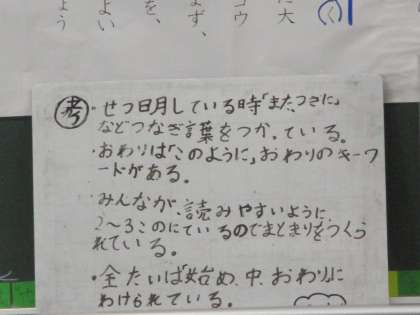 た大
コウ
まず、
を、
よい
よう
考
・せつ日月している時「また、つぎに」
などつなぎ言葉をつかっている。
・おわりは「このように」、おわりのキーワ
ードがある。
・みんなが、読みやすいように、
2〜3このにているのでまとまりをつくら
れている。
・全たいは「始め、中、おわり」に
わけられている。